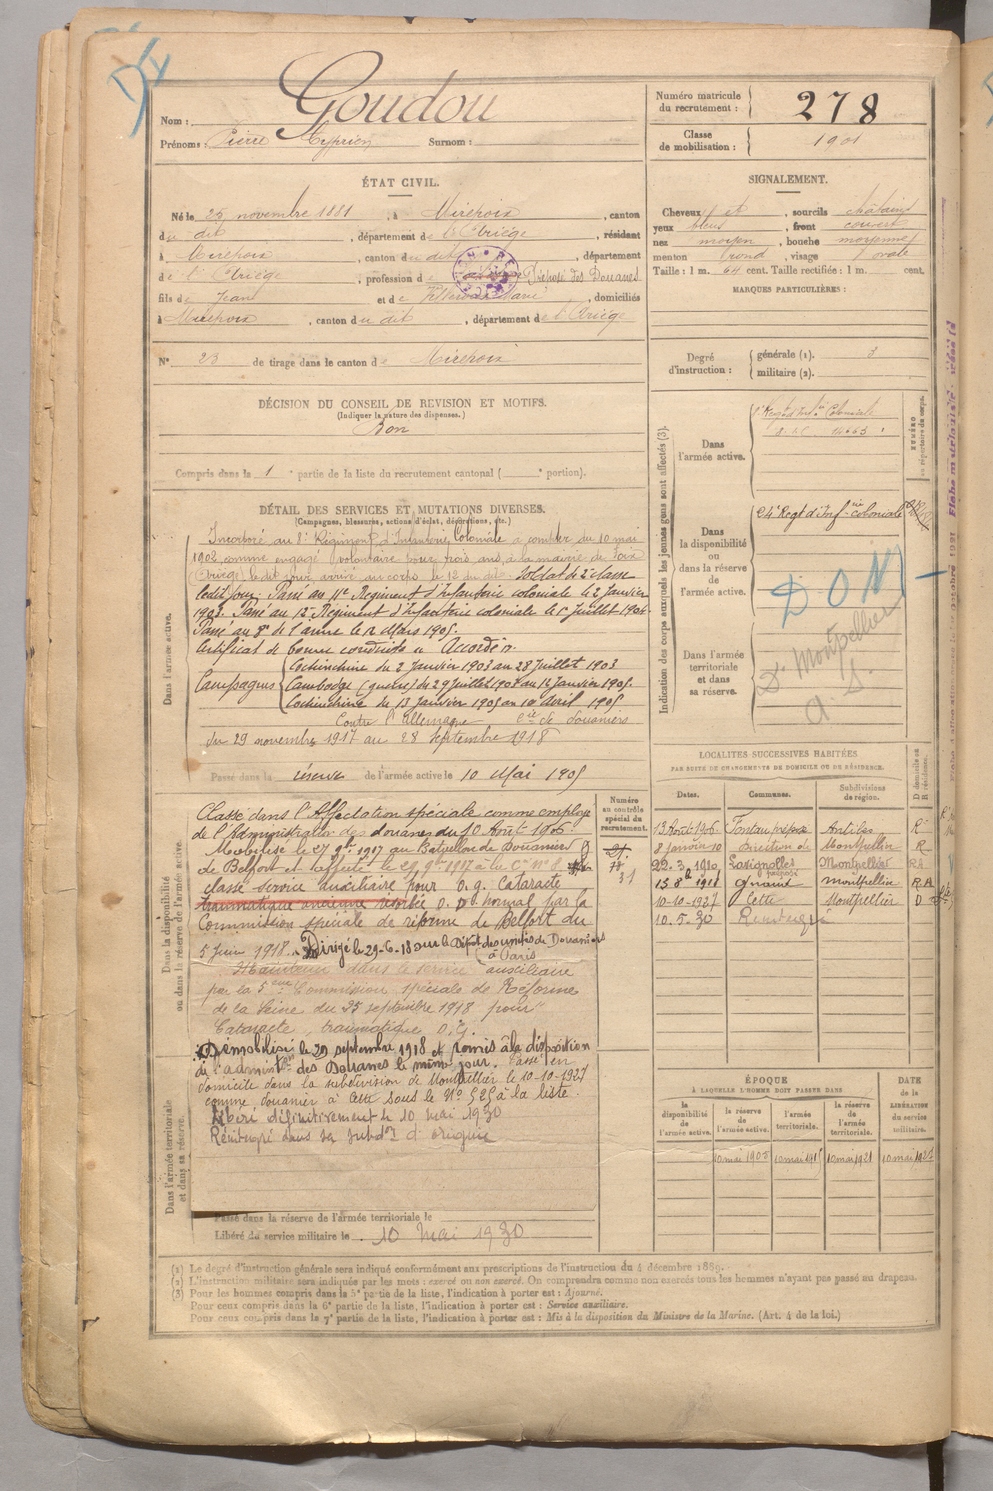 Nom : Goudou
Prénoms : Pierre Cyprien Surnom :
Numéro matricule du recrutement : 278
Classe de mobilisation : 1901
ÉTAT CIVIL.
Né le 25 novembre 1881, à Mirepoix, canton
du dit, département de l'Ariège, résidant
à Mirepoix, canton du dit, département
de l'Ariège, profession de Préposé des Douanes
fils de Jean et de Marie, domiciliés
à Mirepoix, canton du dit, département de l'Ariège
N° 23 de tirage dans le canton de Mirepoix
SIGNALEMENT.
Cheveux et, sourcils châtains
yeux bleus, front couvert
nez moyen, bouche moyenne
menton rond, visage ovale
Taille : 1 m. 64 cent. Taille rectifiée : 1 m. cent.
MARQUES PARTICULIÈRES :
Degré d'instruction : générale (1). 3
militaire (2).
DÉCISION DU CONSEIL DE REVISION ET MOTIFS.
(Indiquer la nature des dispenses.)
Bon
Compris dans la 1e partie de la liste du recrutement cantonal ( e portion).
DÉTAIL DES SERVICES ET MUTATIONS DIVERSES.
(Campagnes, blessures, actions d'éclat, décorations, etc.)
Dans l'armée active.
Incorporé au 8e Régiment d'Infanterie Coloniale à compter du 10 mai
1902, comme engagé volontaire pour trois ans, à la mairie de Foix
(Ariège) le dit jour, arrivé au corps le 12 du dit, Soldat de 2e classe
ledit jour. Passé au 11e Régiment d'infanterie coloniale le 2 janvier
1903. Passé au 12e Régiment d'Infanterie coloniale le 1er Juillet 1904.
Passé au 8e de l'arme le 12 Mars 1905.
Certificat de bonne conduite "Accordé".
Campagnes
Cochinchine du 2 Janvier 1903 au 28 Juillet 1903
Cambodge (guerre) du 29 Juillet 1903 au 12 Janvier 1905.
Cochinchine du 13 Janvier 1905 au 10 Avril 1905
Contre l'Allemagne Cie de douaniers
du 29 novembre 1917 au 28 septembre 1918
Passé dans la réserve de l'armée active le 10 Mai 1905
Dans la disponibilité ou dans la réserve de l'armée active.
Classé dans l'Affectation spéciale comme employé
de l'Administration des douanes du 10 Août 1906.
Mobilisé le 27 9bre 1917 au Bataillon de Douaniers
de Belfort et affecté le 29 9bre 1917 à la Cie N° 4
classé service auxiliaire pour O. g. cataracte
traumatique ancienne résorbée O. D. normal par la
Commission spéciale de réforme de Belfort du
5 Juin 1918. Dirigé le 29-6-18 sur le Dépôt des unités de Douaniers
à Paris
Maintenu dans le service auxiliaire
par la 5eme Commission spéciale de Réforme
de la Seine du 25 septembre 1918 pour
Cataracte, traumatique O. G.
Démobilisé le 29 septembre 1918 et remis à la disposition
de l'administon des Douanes le même jour. Passé en
domicile dans la subdivision de Montpellier le 10-10-1927
comme douanier à Cette sous le N° 525 à la liste.
Libéré définitivement le 10 mai 1930
Réintégré dans sa subdon d'origine
Dans l'armée territoriale et dans sa réserve.
Passé dans la réserve de l'armée territoriale le
Libéré du service militaire le 10 Mai 1930
Indication des corps auxquels les jeunes gens sont affectés (3).
Dans l'armée active.
8e Régt d'Infie Coloniale
14665
Dans la disponibilité ou dans la réserve de l'armée active.
24e Régt d'Inf-rie coloniale
DON
Dans l'armée territoriale et dans sa réserve.
Don Montpellier
LOCALITÉS SUCCESSIVES HABITÉES
PAR SUITE DE CHANGEMENTS DE DOMICILE OU DE RÉSIDENCE.
Numéro au contrôle spécial du recrutement.
Dates. Communes. Subdivisions de région. D domicile ou R résidence.
13 Août 1906. Antilles R
8 janvier 10 Direction de Montpellier R
22. 3. 1910 Montpellier RA
15 8bre 1911 Montpellier RA
10-10-1927 Cette Montpellier D
10. 5. 30 Réintégré
ÉPOQUE
À LAQUELLE L'HOMME DOIT PASSER DANS
DATE DE LA LIBÉRATION DU SERVICE MILITAIRE.
la disponibilité de l'armée active. la réserve de l'armée active. l'armée territoriale. la réserve de l'armée territoriale.
10 mai 1905 10 mai 1915 10 mai 1921 10 mai 1927
(1) Le degré d'instruction générale sera indiqué conformément aux prescriptions de l'instruction du 4 décembre 1889.
(2) L'instruction militaire sera indiquée par les mots : exercé ou non exercé. On comprendra comme non exercés tous les hommes n'ayant pas passé au drapeau.
(3) Pour les hommes compris dans la 5e partie de la liste, l'indication à porter est : Ajourné.
Pour ceux compris dans la 6e partie de la liste, l'indication à porter est : Service auxiliaire.
Pour ceux compris dans la 7e partie de la liste, l'indication à porter est : Mis à la disposition du Ministre de la Marine. (Art. 4 de la loi.)